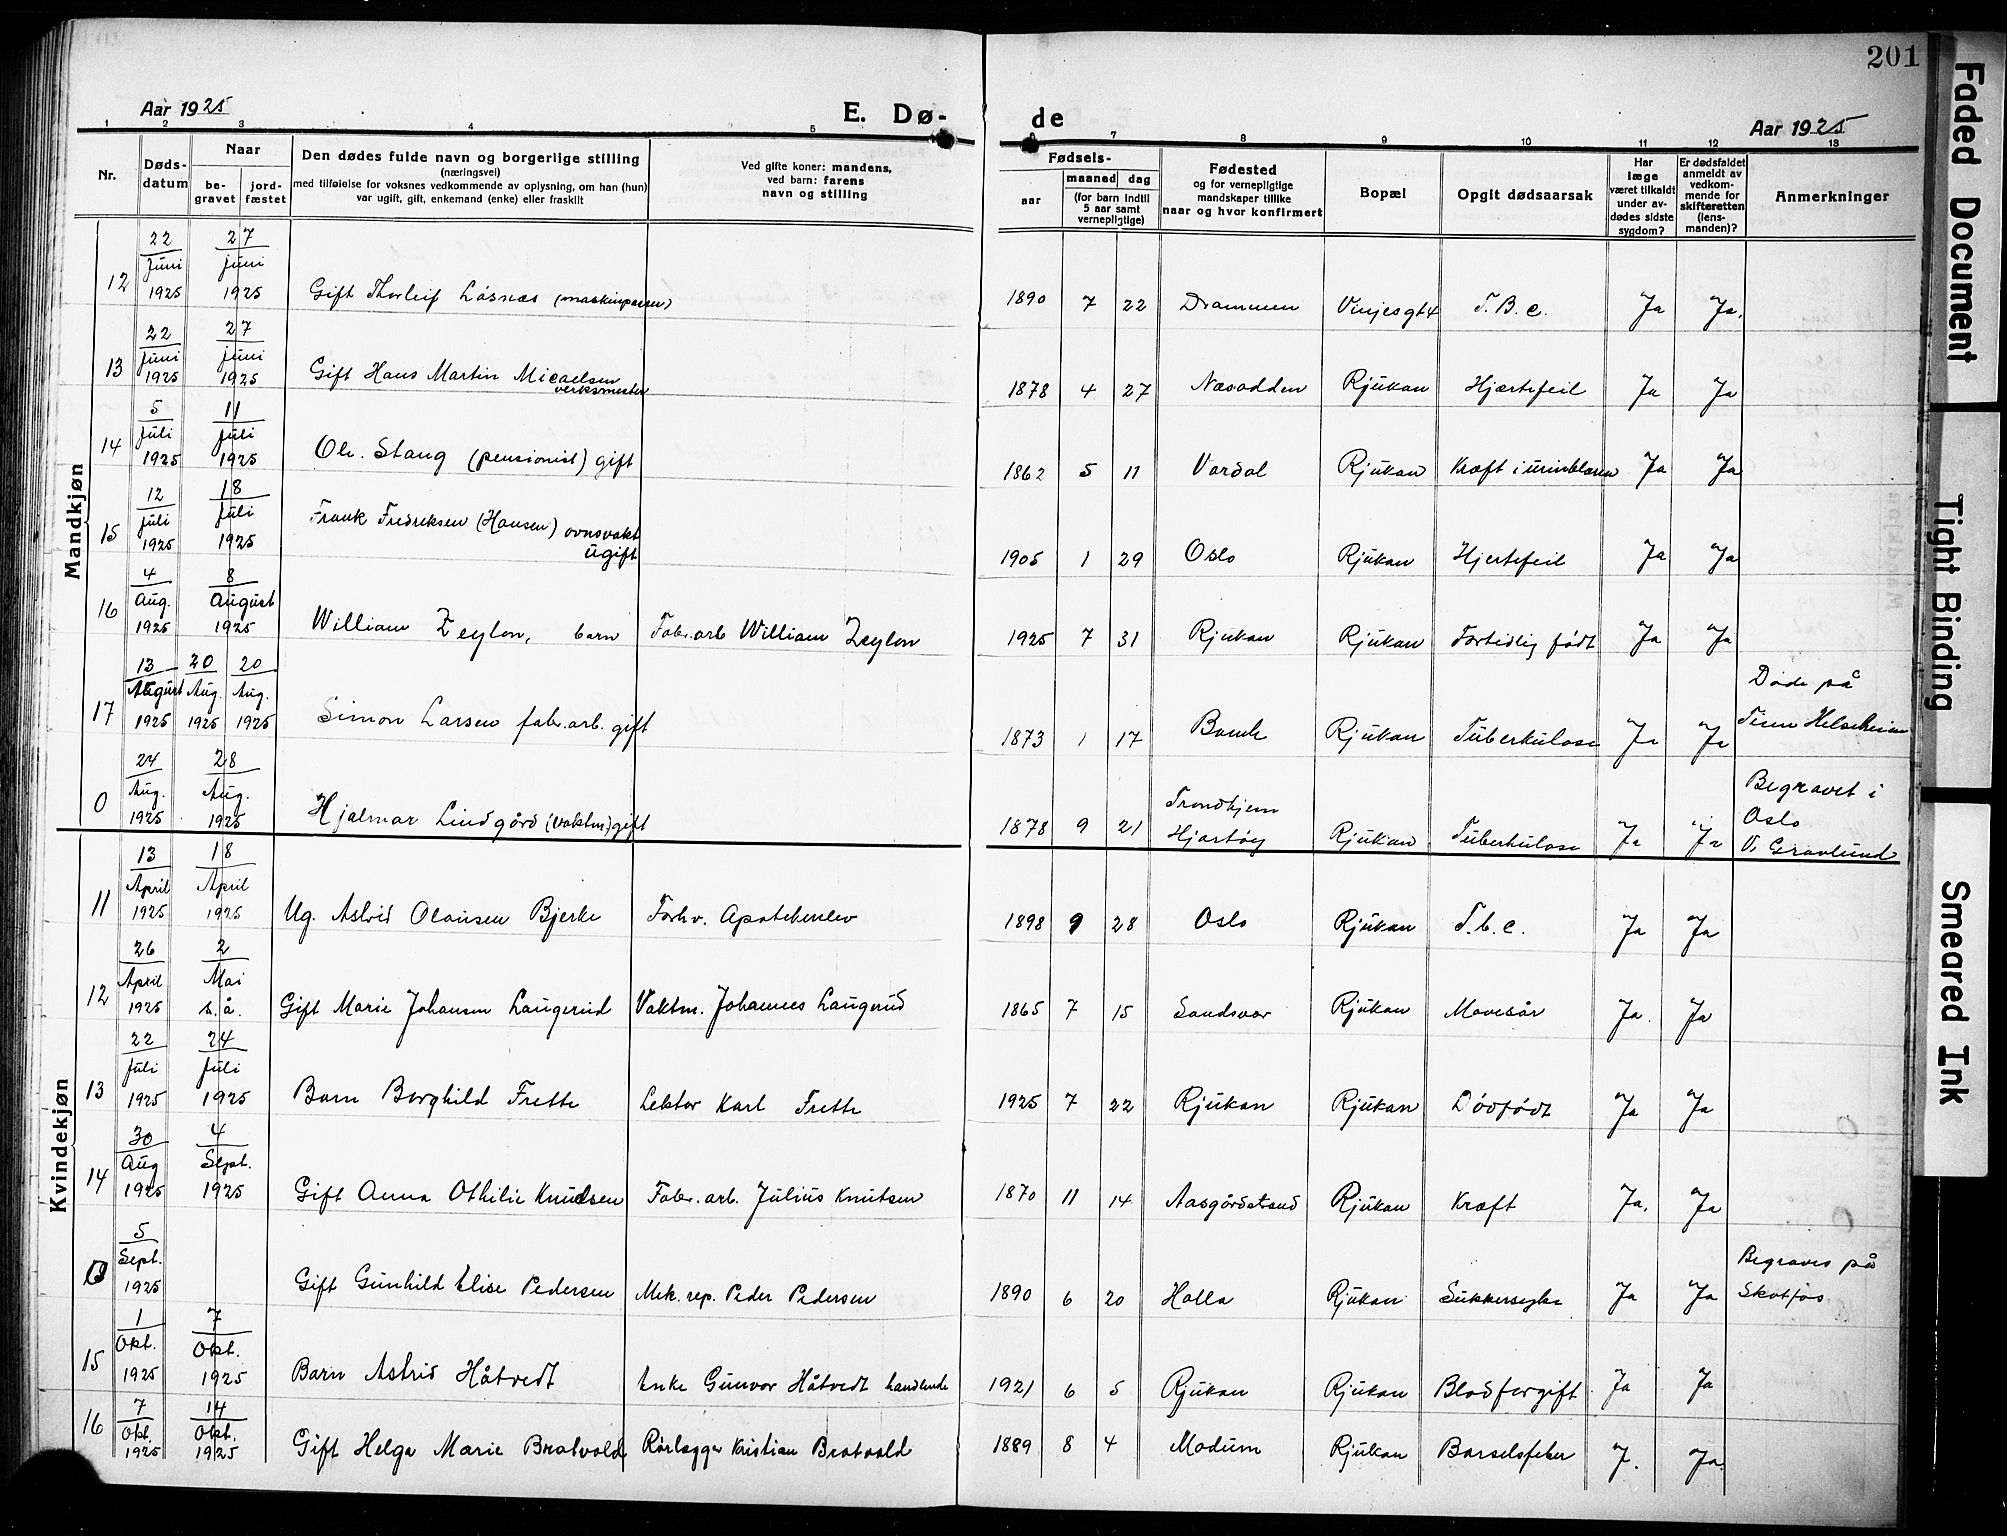 201
Aar 1925
E. Dø-
de
Aar 1925
1 2 3 4 5 7 8 9 10 11 12 13
Nr.
Døds-
datum
Naar
be-
gravet
jord-
fæstet
Den dødes fulde navn og borgerlige stilling
(næringsvei)
med tilføielse for voksnes vedkommende av oplysning, om han (hun)
var ugift, gift, enkemand (enke) eller fraskilt
Ved gifte koner: mandens,
ved barn: farens
navn og stilling
Fødsels-
aar
maaned dag
(for barn indtil
5 aar samt
vernepligtige)
Fødested
og for vernepligtige
mandskaper tillike
naar og hvor konfirmert
Bopæl
Opgit dødsaarsak
Har
læge
været tilkaldt
under av-
dødes sidste
sygdom?
Er dødsfaldet
anmeldt av
vedkom-
mende for
skifteretten
(lens-
manden)?
Anmerkninger
Mandkjøn
12 22 Juni 1925 27 juni 1925 Gift Thorleif Løsnæs (maskinpasser) 1890 7 22 Drammen Vinjesgt 4 T.B.c. Ja Ja.
13 22 Juni 1925 27 juni 1925 Gift Hans Martin Micaelsen verksmester 1878 4 27 Næsodden Rjukan Hjærtefeil Ja Ja
14 5 Juli 1925 11 Juli 1925 Ole Stang (pensionist) gift 1862 5 11 Vardal Rjukan Kræft i urinblæren Ja Ja
15 12 Juli 1925 18 Juli 1925 Frank Fredreksen (Hansen) ovnsvakt ugift 1905 1 29 Oslo Rjukan Hjertefeil Ja Ja
16 4 Aug. 1925 8 August 1925 William Zeylon, barn Fabr.arb. William Zeylon 1925 7 31 Rjukan Rjukan Fortidlig født Ja Ja
17 13 August 1925 20 Aug. 1925 20 Aug. 1925 Simon Larsen fabr.arb. gift 1873 1 17 Bamle Rjukan Tuberkulose Ja Ja Døde på Tinn Helseheim
0 24 Aug. 1925 28 Aug. 1925 Hjalmar Lindgård (vaktm) gift 1878 9 21 Trondhjem Hjartøy Rjukan Tuberkulose Ja Ja Begravet i Oslo V. Gravlund
Kvindekjøn
11 13 April 1925 18 April 1925 Ug. Astrid Olausen Bjerke Forhv. Apotekerelev 1898 9 28 Oslo Rjukan T.b.c. Ja Ja
12 26 April 1925 2 Mai s.å. Gift Marie Johansen Laugerud Vaktm. Johannes Laugerud 1865 7 15 Sandsvær Rjukan Mavesår Ja. Ja
13 22 Juli 1925 24 Juli 1925 Barn Borghild Frette Lektor Karl Frette 1925 7 22 Rjukan Rjukan Dødfødt Ja Ja
14 30 Aug 1925 4 Sept. 1925 Gift Anna Othilie Knudsen Fabr.arb. Julius Knutsen 1870 11 14 Aasgårdstrand Rjukan Kræft Ja. Ja
0 5 Sept. 1925 Gift Gunhild Elise Pedersen Mek. rep. Peder Pedersen 1890 6 20 Holla Rjukan Sukkersyke Ja Ja Begraves på Skotfos
15 1 Okt. 1925 7 Okt. 1925 Barn Astrid Håtvedt Enke Gunvor Håtvedt handlende 1921 6 5 Rjukan Rjukan Blodforgift. Ja Ja
16 7 Okt. 1925 14 Okt. 1925 Gift Helga Marie Bratvold Rørlegger Kristian Bratvold 1889 8 4 Modum Rjukan Barselsfeber J. Ja.
Faded Document
Tight Binding
Smeared Ink